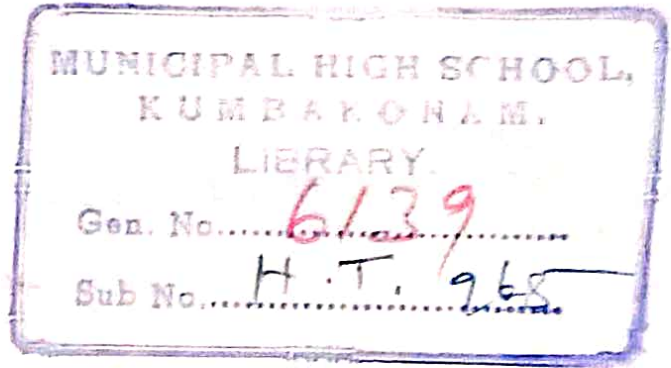 MUNICIPAL HIGH SCHOOL,
KUMBAKONAM.
LIBRARY.
Gen. No. 6139
Sub No. H.T. 965